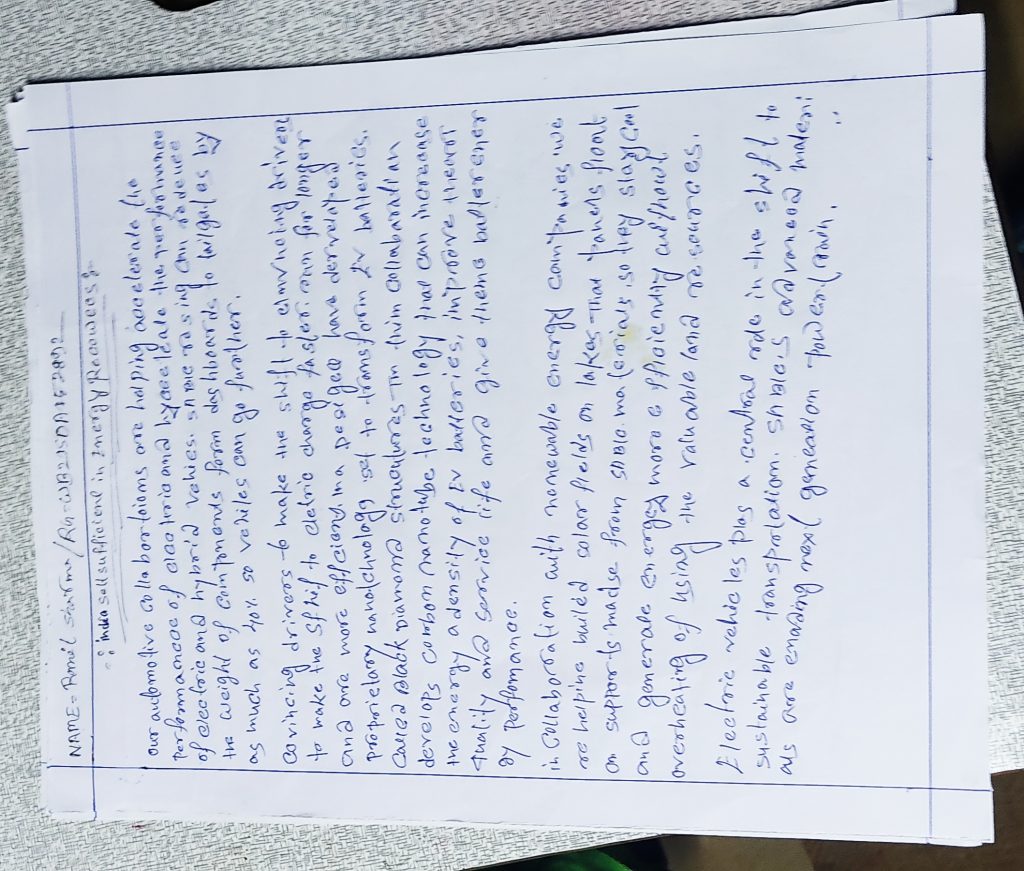 NAME = Amit Sarma / Rn = WB22SDA1652892
:: india self sufficient in Energy Recowees :-
our automotive collabortoions are helping acceelerate the
performancece of electric and hyceeleate the performance
of electric and hybrid vehices. SABIC rasing can redeuce
the weight of componends form dashboards to tailgates by
as much as 40% so vehiles can go further.
covincing drivers to make the shift to
to make the Sfhif to eletric charge faster. run for longer
and are more efficiend. ma desiged have derveloped
proprielary nanolchnology set to transform Ev batteries.
called Black Diamond structures-Tn thin collabaration
develops carbon nanotube technology that can increase
the energy adensity of Ev batteries, improve theair
quality and service life and give thems batterener
by perfomance.
in collaboration with nonewable energy companies we
are helpine builed solar fields on lakes-That panels float
on supports madse form SABIC. materials, so they stay cool
and generale energy more efficiemtly without
overheating of using the valuable land resources.
Electric vehicles plas a central role in the shift to
sustainable transpotation. SABIC's advanced materi
als are enabling next geneation power train.